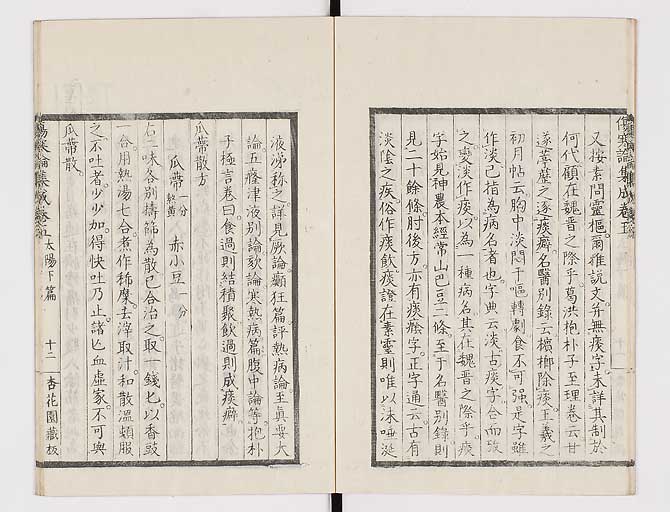 傷寒論集成卷五
又按素問靈樞爾雅說文並無痰字未詳其制於
何代顧在魏晋之際乎葛洪抱朴子至理卷云甘
遂葶藶之逐痰癖名醫別錄云檳榔除痰王羲之
初月帖云胸中淡悶干嘔轉劇食不可強是字雖
作淡已指為病名者也字典云淡古痰字合而攷
之變淡作痰以為一種病名其在魏晋之際乎痰
字始見神農本經常山巴豆二條至于名醫別錄則
見二十餘條肘後方亦有痰癊字正字通云古有
淡陰之疾俗作痰飲痰證在素靈則唯以沫唾涎
液涕称之詳見厥論癲狂篇評熱病論至眞要大
論五癃津液別論欬論寒熱病篇腹中論等抱朴
子極言卷曰食過則結積聚飲過則成痰癖
瓜蒂散方
瓜蒂 一分熬黃 赤小豆 一分
右二味各別擣篩為散已合治之取一錢匕以香豉
一合用熱湯七合煮作稀糜去滓取汁和散溫頓服
之不吐者少少加得快吐乃止諸亡血虛家不可與
瓜蒂散
傷寒論集成卷五 太陽下篇 十二 杏花園藏板